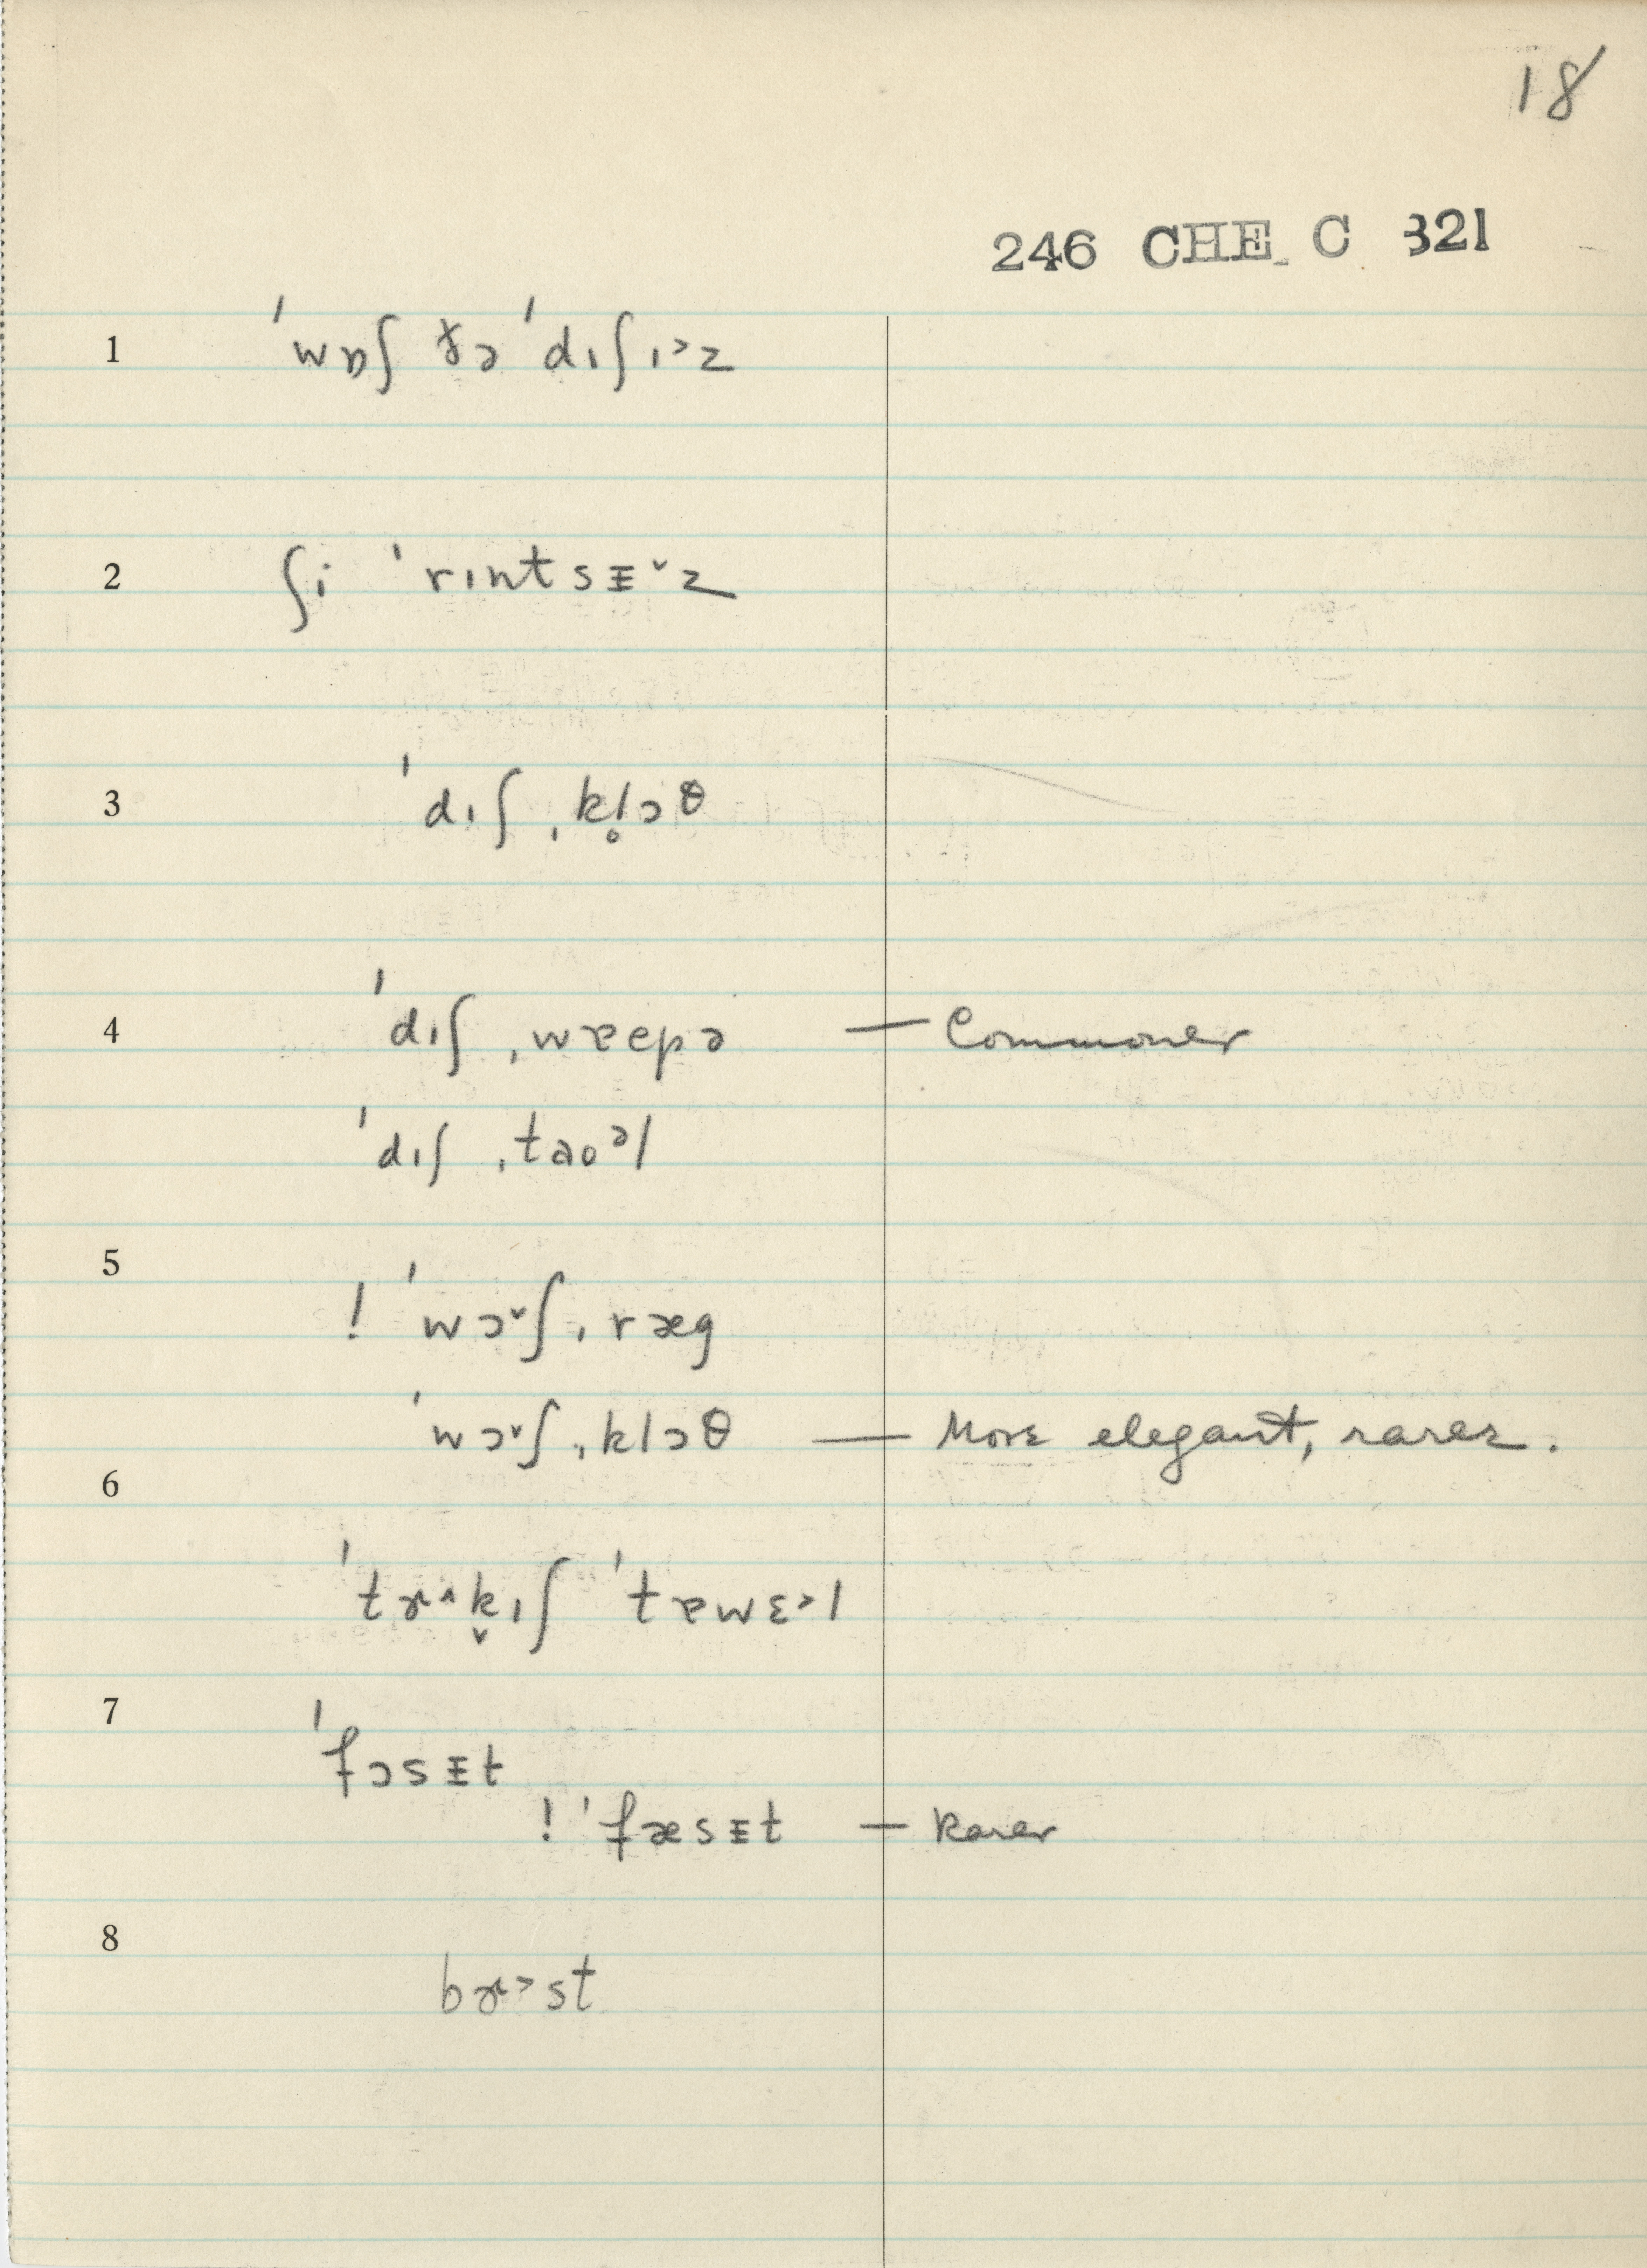 18
246 CHE C 321
1 ˈwɒʃ ðə ˈdɪʃɪ˃z
2 ʃi ˈrɪntsᵻ˅z
3 ˈdɪʃˌkl̥ɔθ
4 ˈdɪʃˌwɐepə — Commoner
ˈdɪʃˌtaoᵊl
5 ! ˈwɔ˅ʃˌræg
ˈwɔ˅ʃˌklɔθ — More elegant, rarer.
6
ˈtɤ˄k̬ɪʃ ˈtɐwɛ˃l
7 ˈfɔsᵻt
! ˈfæsᵻt — Rarer
8
bɤ˃st